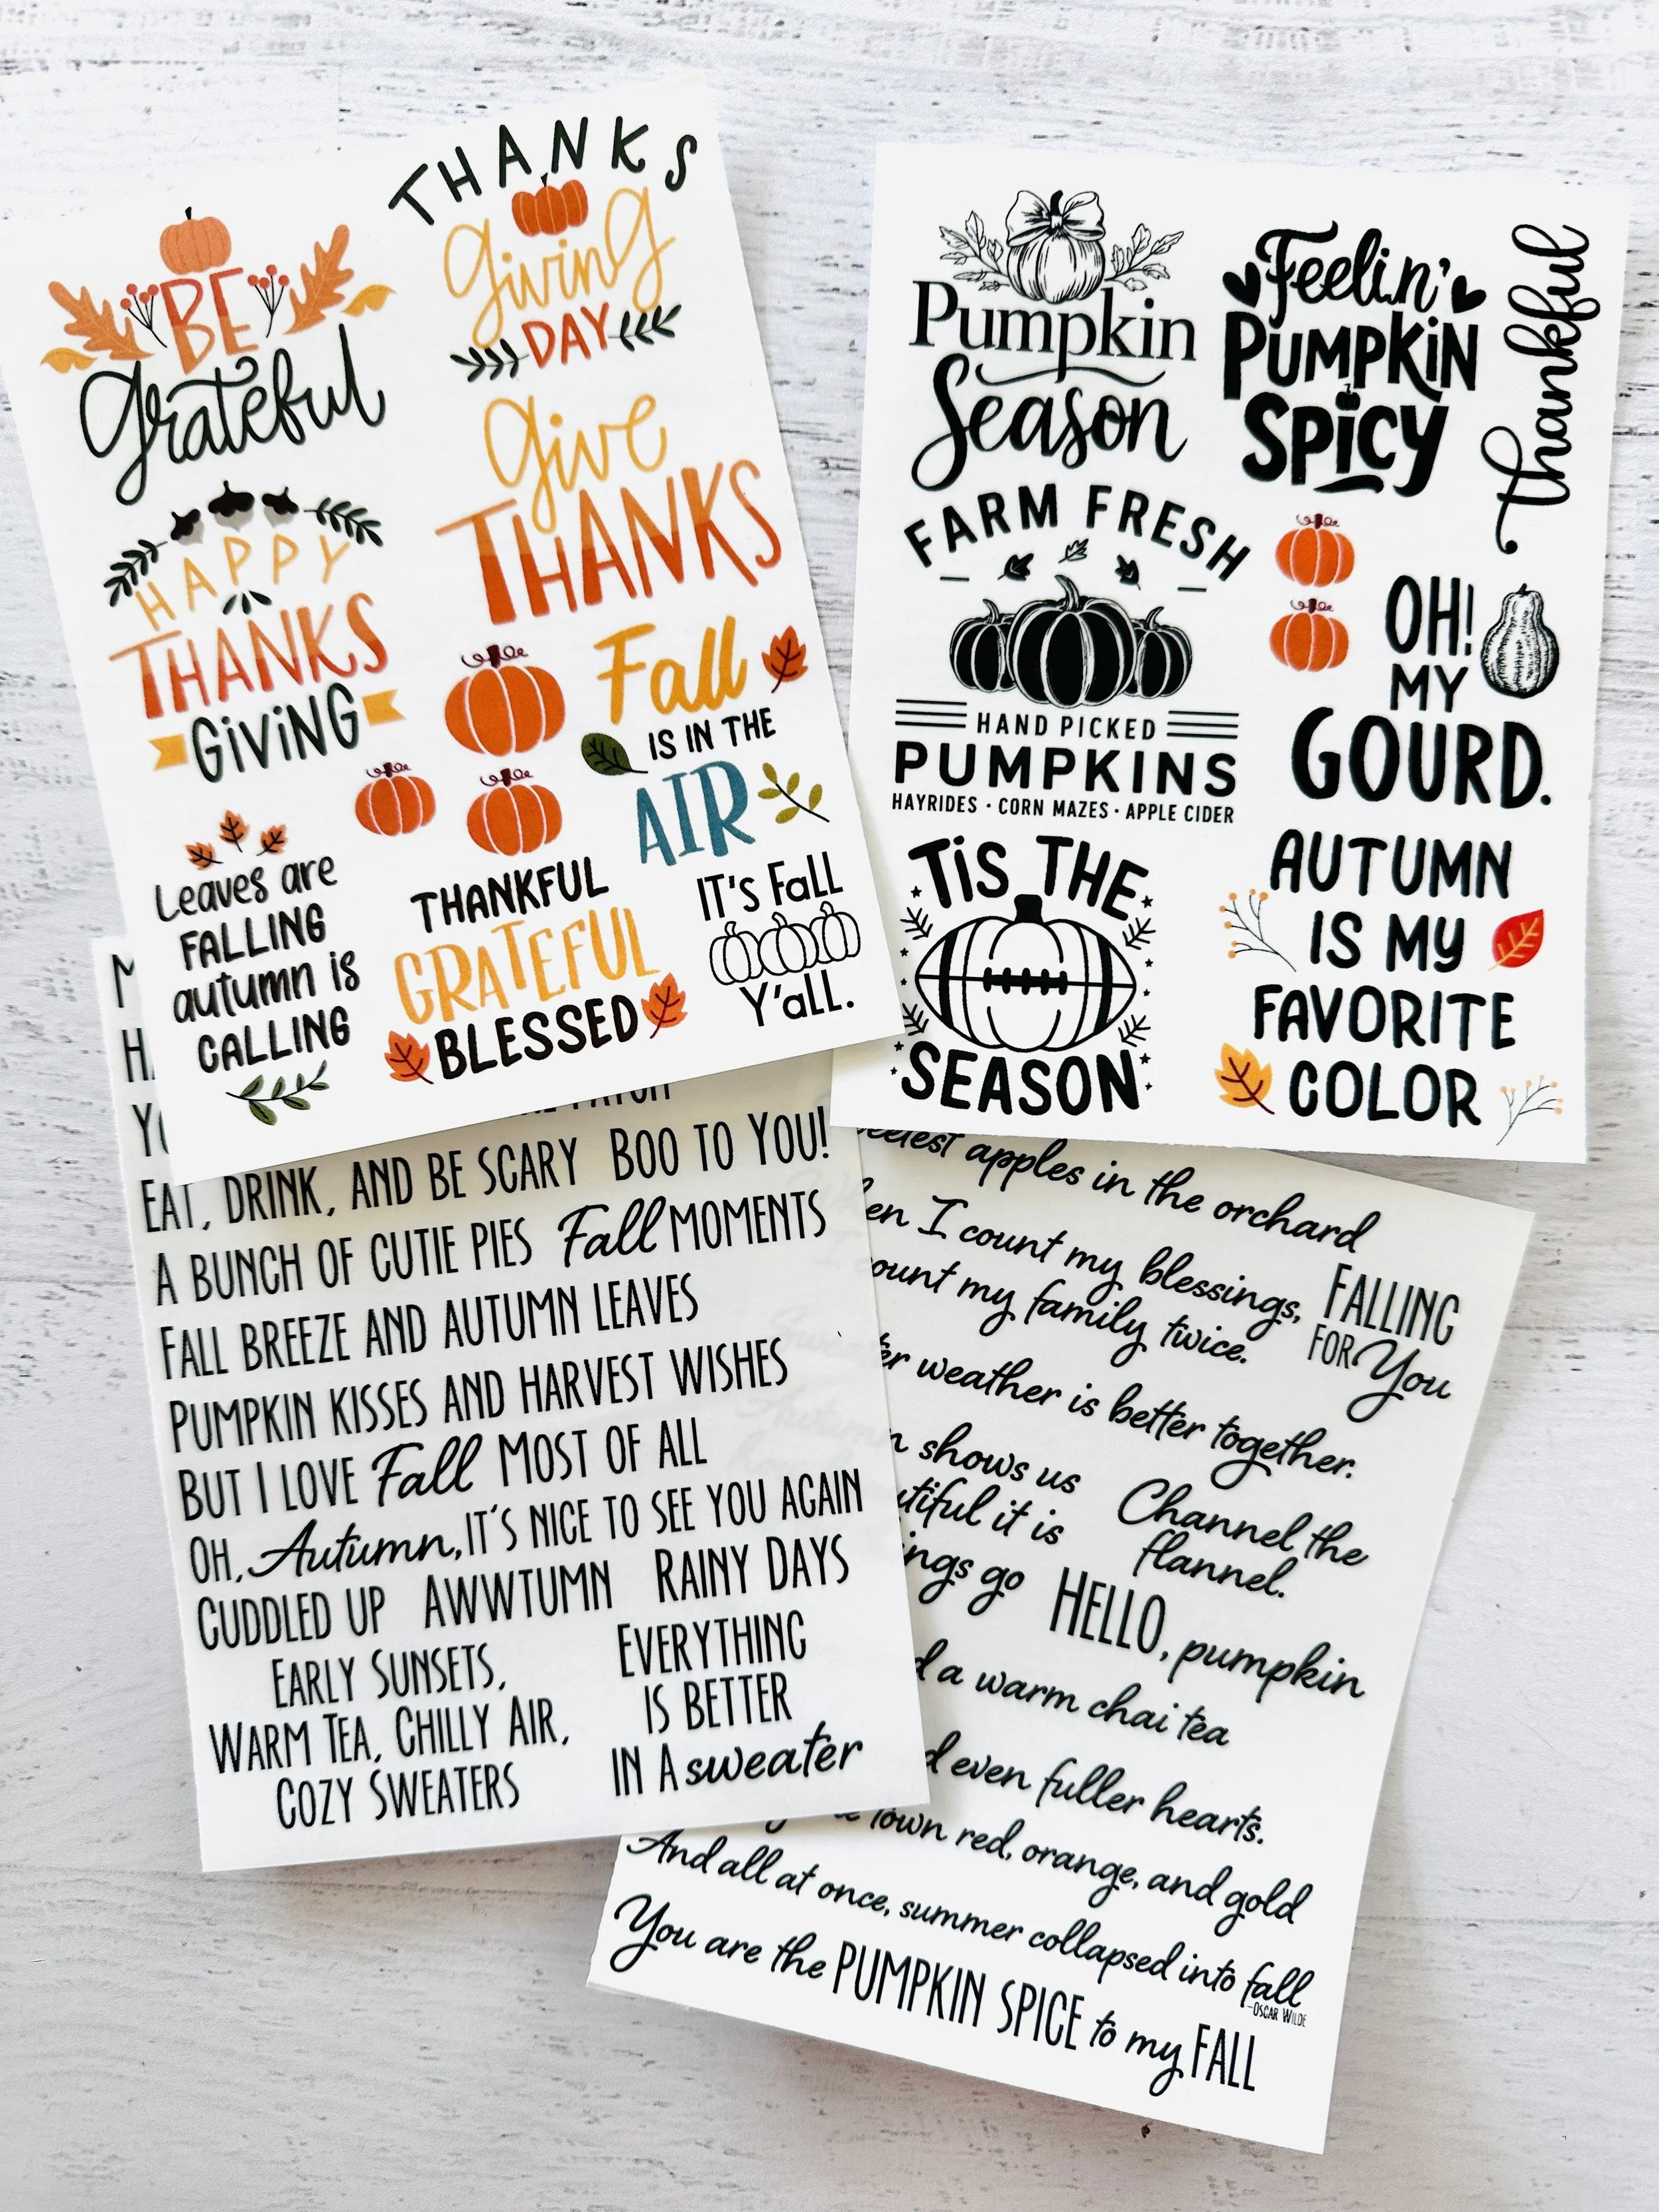 THANKS
giving
DAY
BE
grateful
give
THANKS
HAPPY
THANKS
GIVING
Fall
IS IN THE
AIR
Leaves are
FALLING
autumn is
CALLING
THANKFUL
GRATEFUL
BLESSED
IT'S Fall
Y'all.
Pumpkin
Season
Feelin'
PUMPKIN
SPICY
thankful
FARM FRESH
HAND PICKED
PUMPKINS
HAYRIDES · CORN MAZES · APPLE CIDER
OH!
MY
GOURD.
TIS THE
SEASON
AUTUMN
IS MY
FAVORITE
COLOR
EAT, DRINK, AND BE SCARY BOO TO YOU!
A BUNCH OF CUTIE PIES Fall MOMENTS
FALL BREEZE AND AUTUMN LEAVES
PUMPKIN KISSES AND HARVEST WISHES
BUT I LOVE Fall MOST OF ALL
OH, Autumn, IT'S NICE TO SEE YOU AGAIN
CUDDLED UP AWWTUMN RAINY DAYS
EARLY SUNSETS,
WARM TEA, CHILLY AIR,
COZY SWEATERS
EVERYTHING
IS BETTER
IN A sweater
apples in the orchard
I count my blessings,
my family twice.
FALLING
FOR You
weather is better together.
shows us
it is
go
Channel the
flannel.
HELLO, pumpkin
a warm chai tea
even fuller hearts.
town red, orange, and gold
And all at once, summer collapsed into fall
-OSCAR WILDE
You are the PUMPKIN SPICE to my FALL